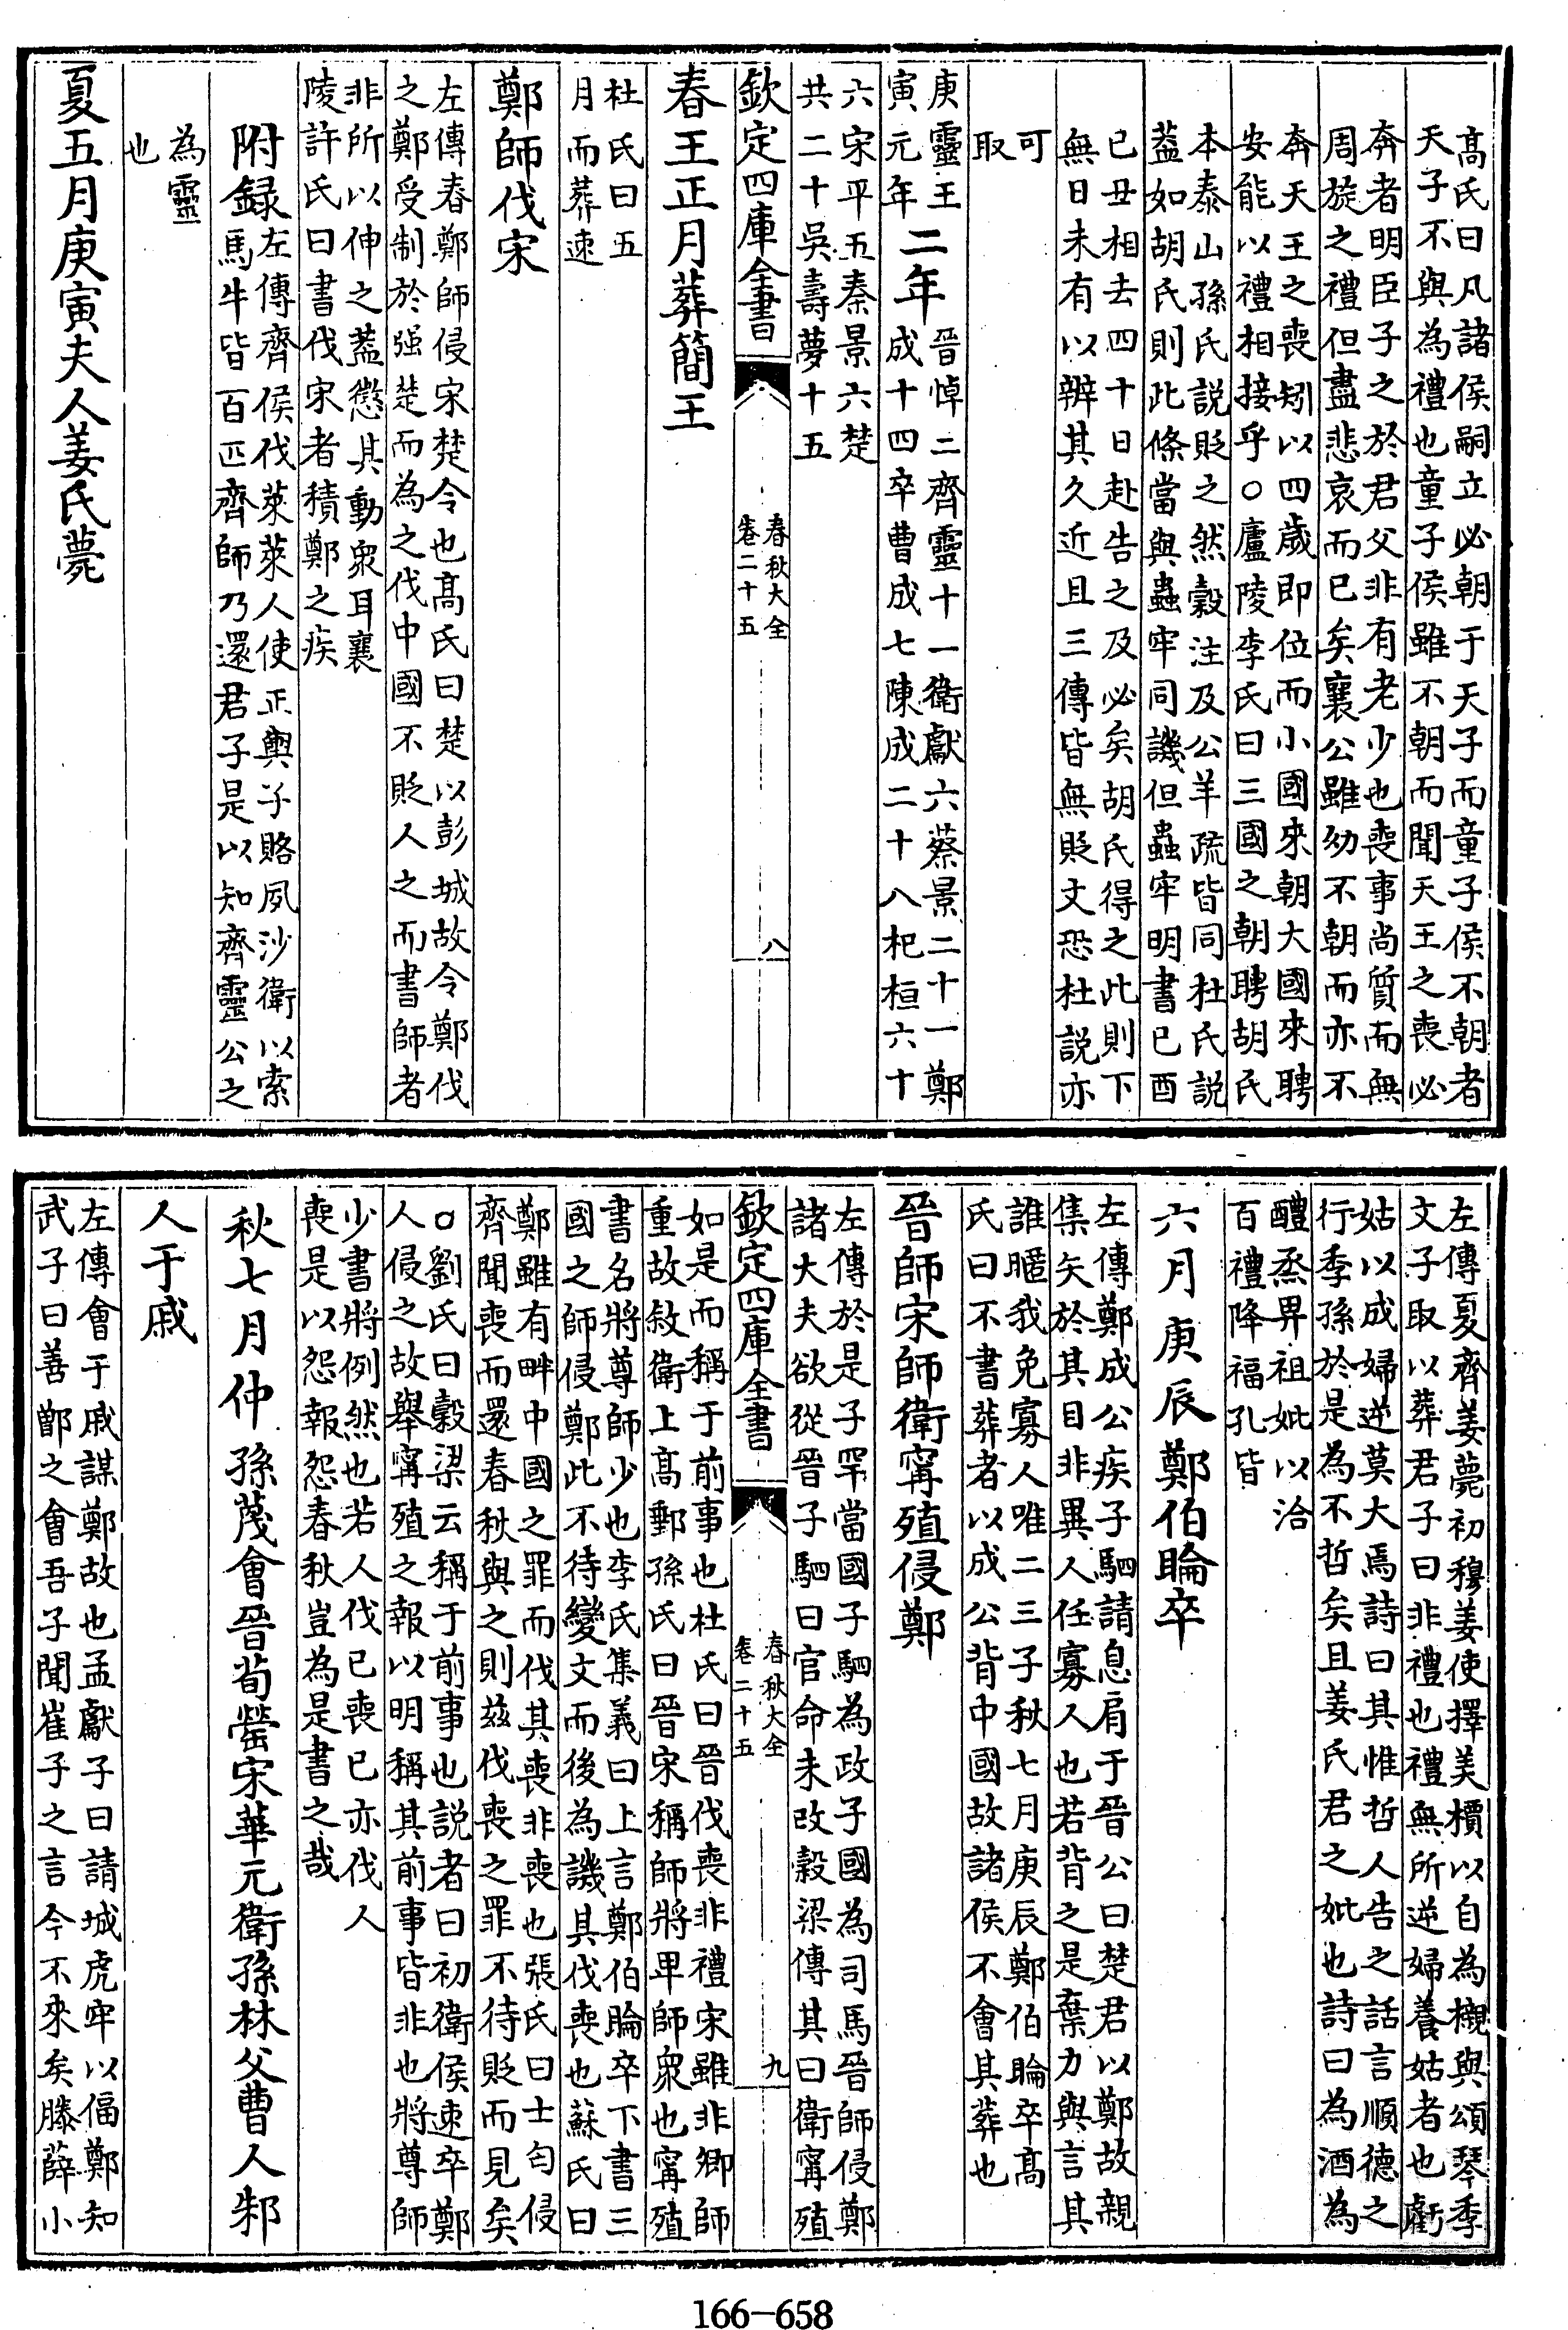 高氏曰凡諸侯嗣立必朝于天子而童子侯不朝者
天子不與為禮也童子侯雖不朝而聞天王之喪必
奔者明臣子之於君父非有老少也喪事尚質而無
周旋之禮但盡悲哀而已矣襄公雖幼不朝而亦不
奔天王之喪矧以四歲即位而小國來朝大國來聘
安能以禮相接乎○廬陵李氏曰三國之朝聘胡氏
本泰山孫氏説貶之然穀注及公羊疏皆同杜氏説
葢如胡氏則此條當與蟲牢同譏但蟲牢明書已酉
已丑相去四十日赴告之及必矣胡氏得之此則下
無日未有以辨其久近且三傳皆無貶文恐杜説亦
可
取
庚靈王
寅元年
二年
晉悼二齊靈十一衛獻六蔡景二十一鄭
成十四卒曹成七陳成二十八杞桓六十
六宋平五秦景六楚
共二十吳壽夢十五
欽定四庫全書
春秋大全
卷二十五
八
春王正月葬簡王
杜氏曰五
月而葬速
鄭師伐宋
左傳春鄭師侵宋楚令也高氏曰楚以彭城故令鄭伐
之鄭受制於強楚而為之伐中國不貶人之而書師者
非所以伸之葢懲其動衆耳襄
陵許氏曰書伐宋者積鄭之疾
附録
左傳齊侯伐萊萊人使正輿子賂夙沙衛以索
馬牛皆百匹齊師乃還君子是以知齊靈公之
為靈
也
夏五月庚寅夫人姜氏薨
左傳夏齊姜薨初穆姜使擇美檟以自為櫬與頌琴季
文子取以葬君子曰非禮也禮無所逆婦養姑者也虧
姑以成婦逆莫大焉詩曰其惟哲人告之話言順德之
行季孫於是為不哲矣且姜氏君之妣也詩曰為酒為
醴烝畀祖妣以洽
百禮降福孔皆
六月庚辰鄭伯睔卒
左傳鄭成公疾子駟請息肩于晉公曰楚君以鄭故親
集矢於其目非異人任寡人也若背之是棄力與言其
誰暱我免寡人唯二三子秋七月庚辰鄭伯睔卒高
氏曰不書葬者以成公背中國故諸侯不會其葬也
晉師宋師衛甯殖侵鄭
左傳於是子罕當國子駟為政子國為司馬晉師侵鄭
諸大夫欲從晉子駟曰官命未改穀梁傳其曰衛甯殖
欽定四庫全書
春秋大全
卷二十五
九
如是而稱于前事也杜氏曰晉伐喪非禮宋雖非卿師
重故敘衛上高郵孫氏曰晉宋稱師將卑師衆也甯殖
書名將尊師少也李氏集義曰上言鄭伯睔卒下書三
國之師侵鄭此不待變文而後為譏其伐喪也蘇氏曰
鄭雖有畔中國之罪而伐其喪非喪也張氏曰士匄侵
齊聞喪而還春秋與之則兹伐喪之罪不待貶而見矣
○劉氏曰穀梁云稱于前事也説者曰初衛侯速卒鄭
人侵之故舉甯殖之報以明稱其前事皆非也將尊師
少書將例然也若人伐已喪已亦伐人
喪是以怨報怨春秋豈為是書之哉
秋七月仲孫蔑會晉荀罃宋華元衛孫林父曹人邾
人于戚
左傳會于戚謀鄭故也孟獻子曰請城虎牢以偪鄭知
武子曰善鄫之會吾子聞崔子之言今不來矣滕薛小
166-658